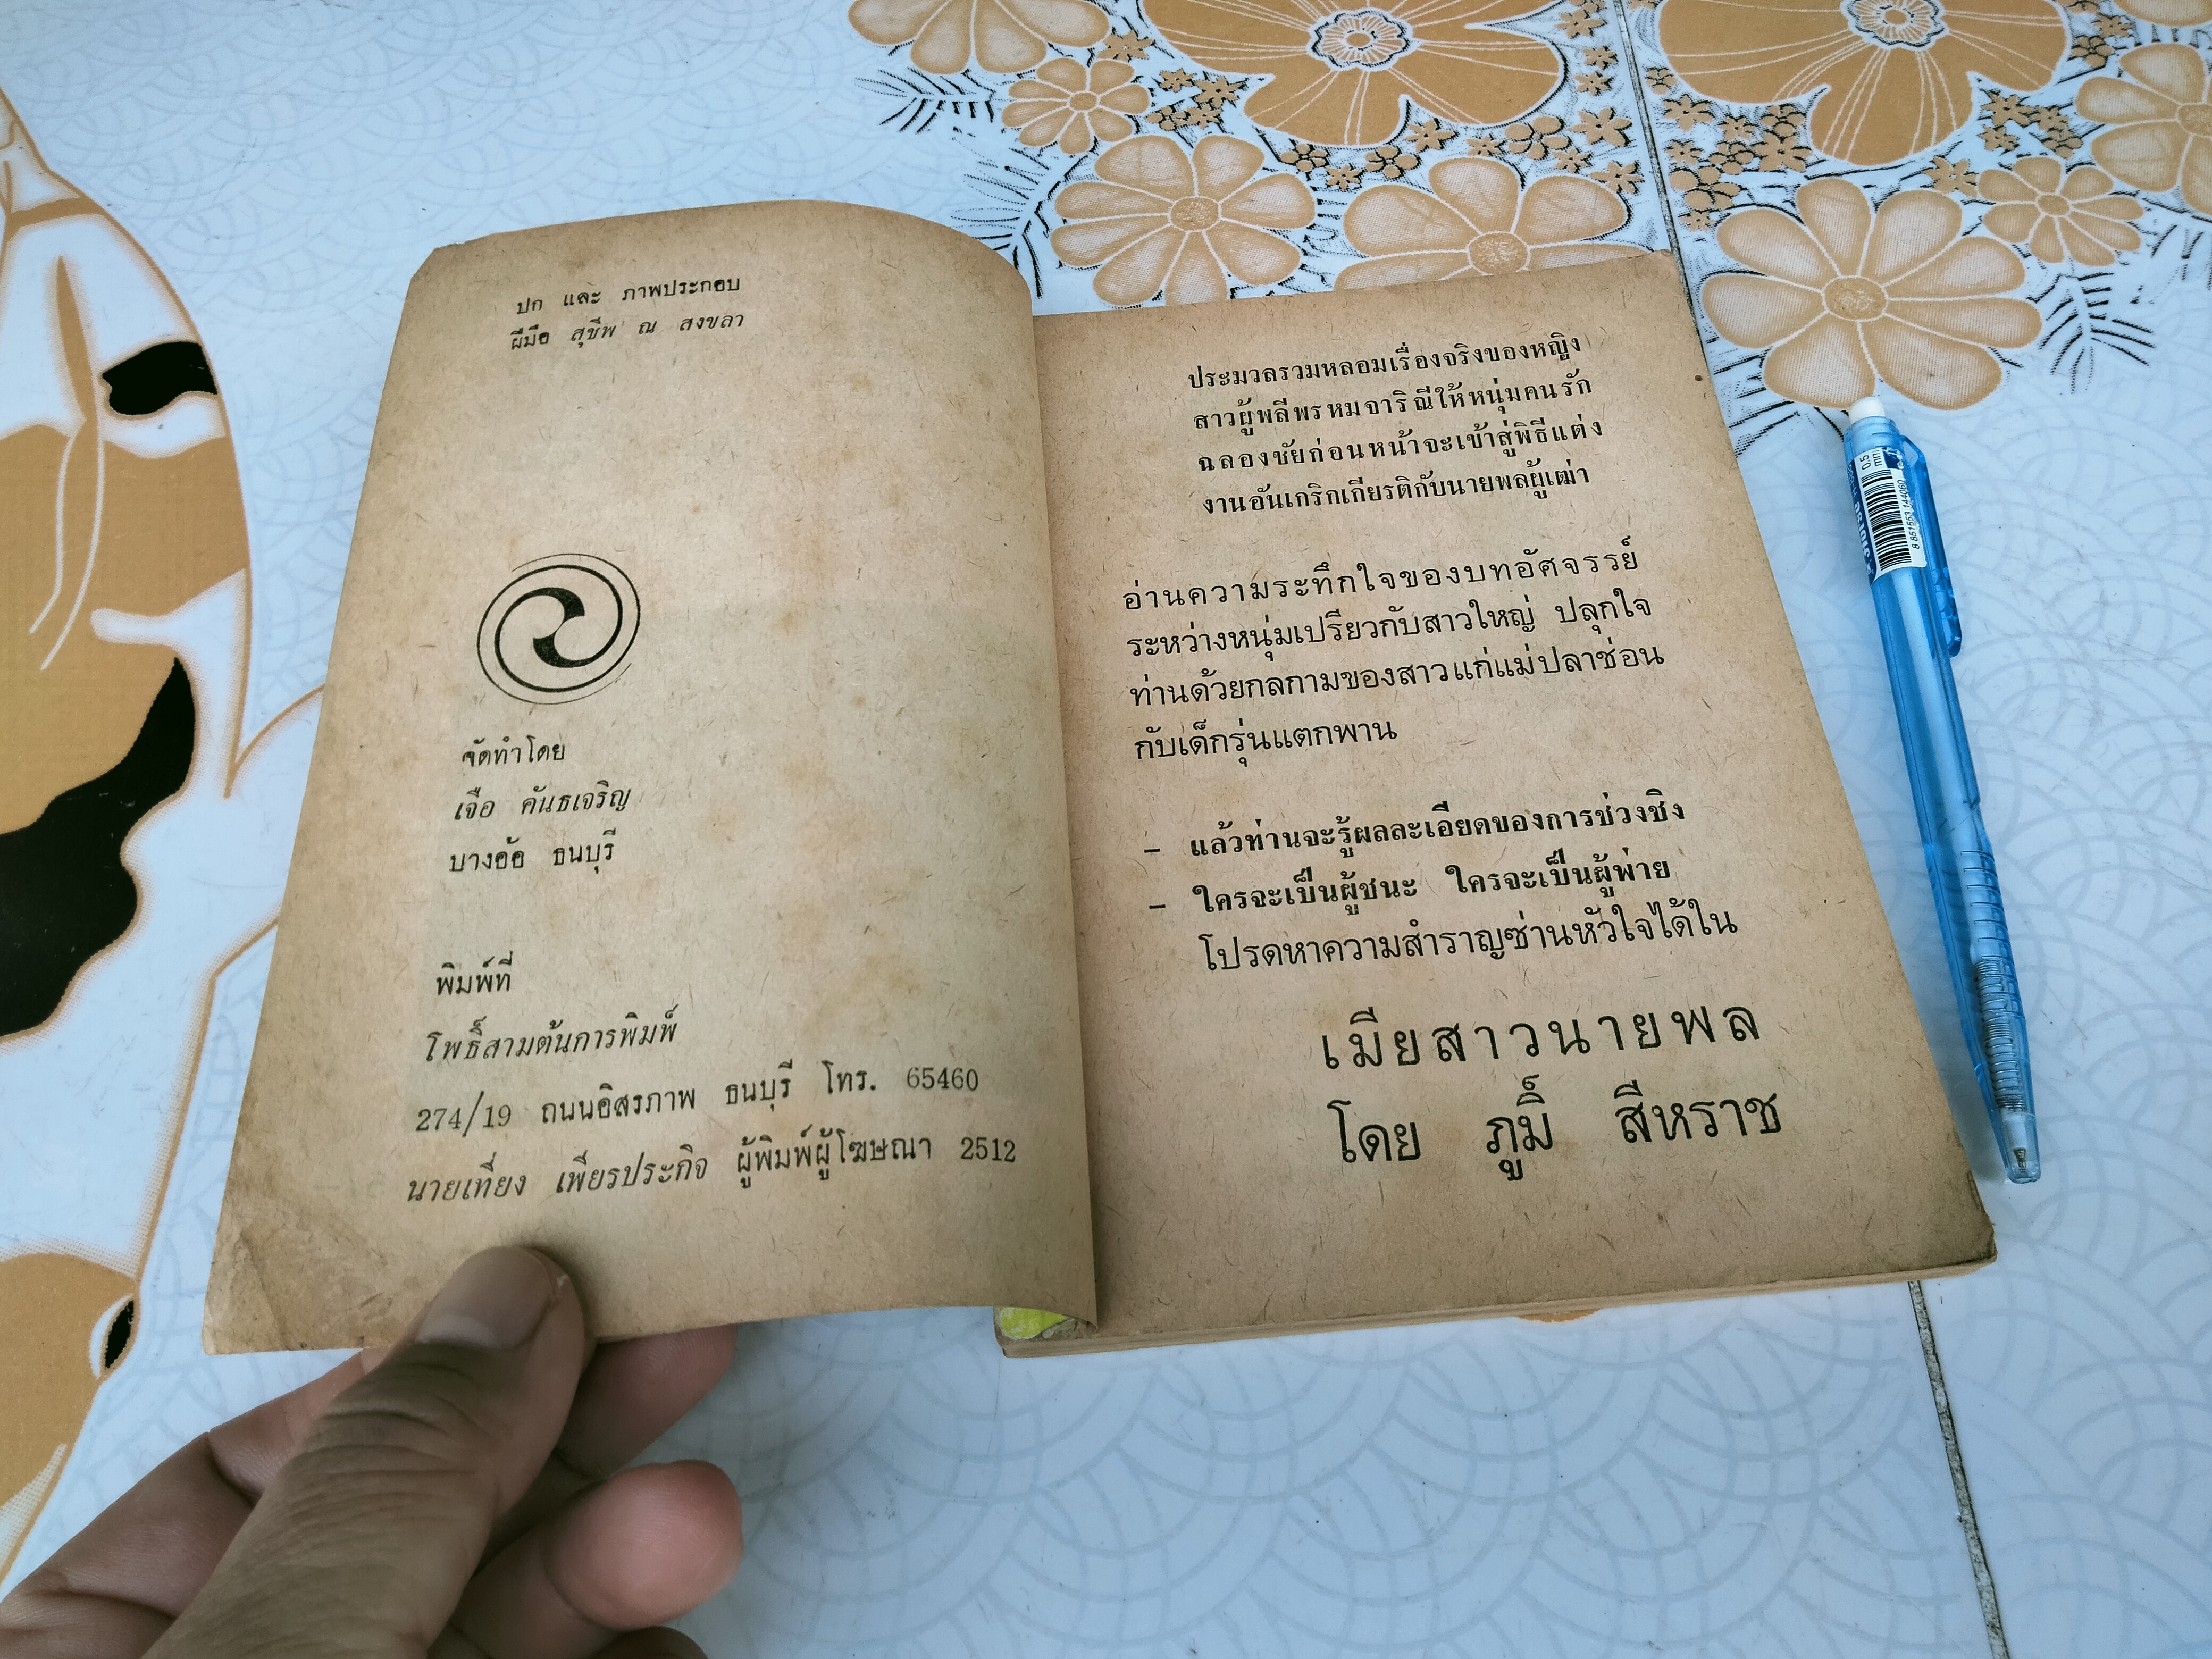 ปก และ ภาพประกอบ
ฝีมือ สุชีพ ณ สงขลา
จัดทำโดย
เจือ คันธเจริญ
บางอ้อ ธนบุรี
พิมพ์ที่
โพธิ์สามต้นการพิมพ์
274/19 ถนนอิสรภาพ ธนบุรี โทร. 65460
นายเที่ยง เพียรประกิจ ผู้พิมพ์ผู้โฆษณา 2512
ประมวลรวมหลอมเรื่องจริงของหญิง
สาวผู้พลีพรหมจาริณีให้หนุ่มคนรัก
ฉลองชัยก่อนหน้าจะเข้าสู่พิธีแต่ง
งานอันเกริกเกียรติกับนายพลผู้เฒ่า
อ่านความระทึกใจของบทอัศจรรย์
ระหว่างหนุ่มเปรียวกับสาวใหญ่ ปลุกใจ
ท่านด้วยกลกามของสาวแก่แม่ปลาช่อน
กับเด็กรุ่นแตกพาน
– แล้วท่านจะรู้ผลละเอียดของการช่วงชิง
– ใครจะเป็นผู้ชนะ ใครจะเป็นผู้พ่าย
โปรดหาความสำราญซ่านหัวใจได้ใน
เมียสาวนายพล
โดย ภูมิ์ สีหราช
0.5
mm